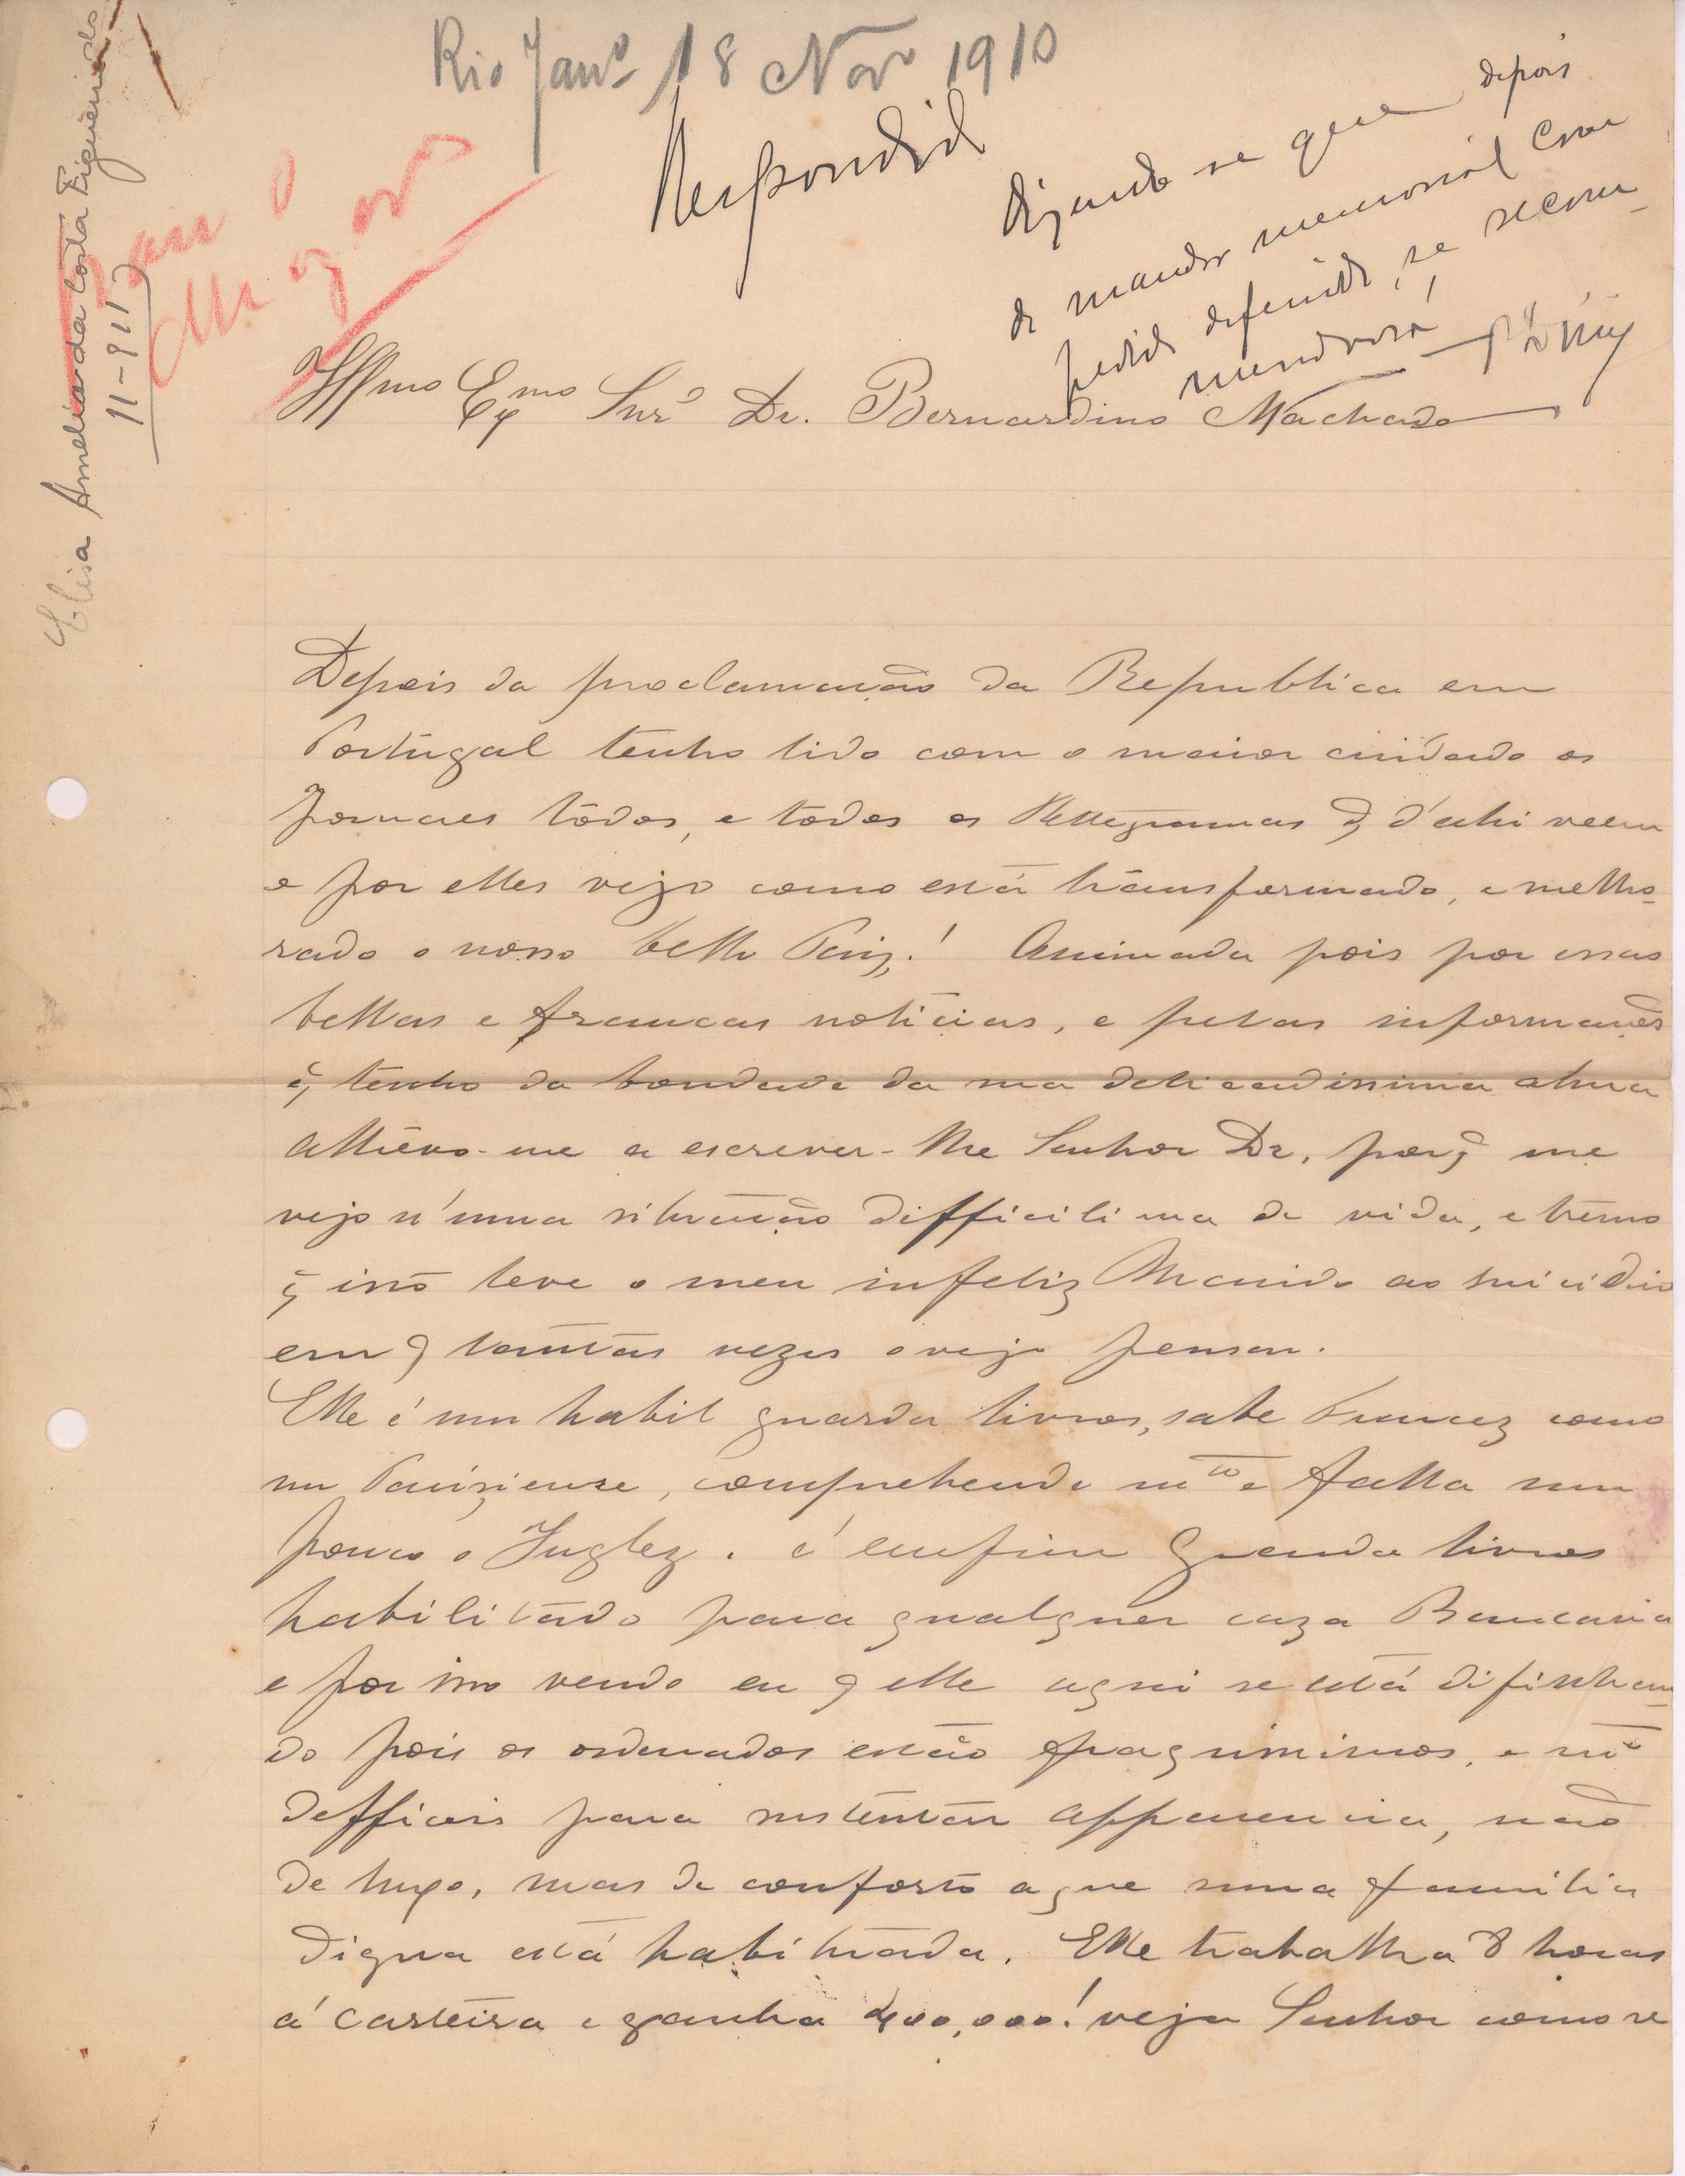 Rio Janº 18 Novº 1910
Respondid
Dizendo se que depois
de mandar memorial com
pedido definido, se recom-
mendará
Elisa Amelia da Costa Figueiredo
11-911
Illmo Exmo Snrº Dr. Bernardino Machado
Depois da proclamação da Republica em
Portugal tenho lido com o maior cuidado os
jornaes tôdos, e todos os tellegrammas q̃ d'ahi veem
e por elles vejo como está transformado, e melho-
rado o nosso bello Paiz! Animada pois por essas
bellas e francas noticias, e pelas informações
q̃ tenho da bondade da sua delicadissima alma
attrevo-me a escrever-lhe Senhor Dr, porq̃ me
vejo n'uma situação difficilima de vida, e temo
q̃ isso leve o meu infeliz Marido ao suicidio
em q̃ tantas vezes o vejo pensar.
Elle é um habil guarda livros, sabe Francez como
um Pariziense, comprehende mto e falla um
pouco o Inglez. é emfim Guarda livros
habilitado para qualquer caza Bancaria
e por isso vendo eu q̃ elle aqui se está difinhan-
do pois os ordenados estão pequinimos, e mto
defficeis para sustentar apparencia, não
de luxo, mas de conforto a que uma familia
digna está habituada. Elle trabalha 8 horas
á carteira e ganha 400,000! veja Senhor como se